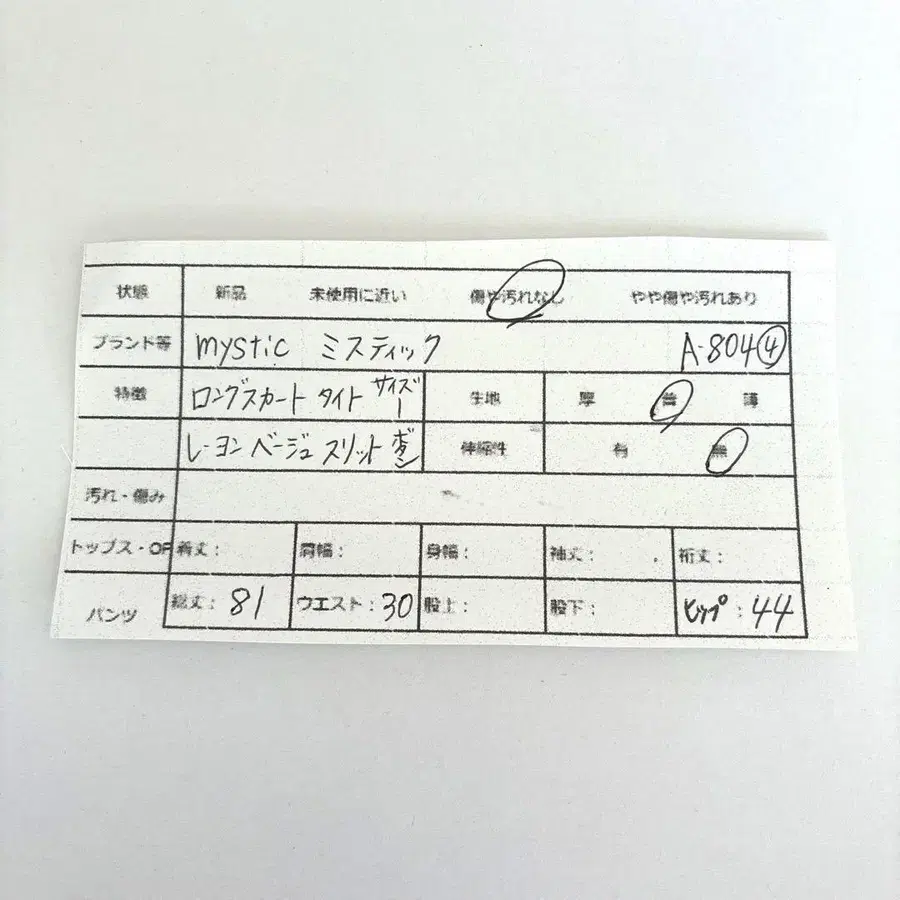 状態 新品 未使用に近い 傷や汚れなし やや傷や汚れあり
ブランド等 mystic ミスティック A-804④
特徴 ロングスカート タイト サイズ1 生地 厚 普 薄
レーヨン ベージュ スリット ボタン 伸縮性 有 無
汚れ・傷み
トップス・OP 着丈: 肩幅: 身幅: 袖丈: 裄丈:
パンツ 総丈:81 ウエスト:30 股上: 股下: ヒップ:44